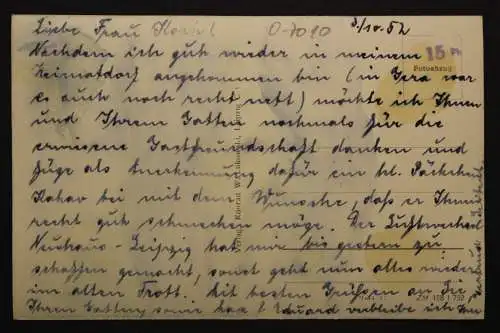 Liebe Frau
O-7010
3/10. 52
Nachdem ich gut wieder in meinem
15 Pf
Fotoabzug
Heimatdorf angekommen bin (in Gera war
es auch noch recht nett) möchte ich Ihnen
und Ihrem Gatten nochmals für die
erwiesene Gastfreundschaft danken und
füge als Anerkennung dafür ein kl. Päckchen
Kakao bei mit dem Wunsche, daß er Ihnen
recht gut schmecken möge. Der Luftwechsel
Neuhaus-Leipzig hat mir bis gestern zu
schaffen gemacht, sonst geht nun alles wieder
im alten Trott. Mit besten Grüßen an Sie,
Ihren Gatten, sowie Eduard verbleibe ich